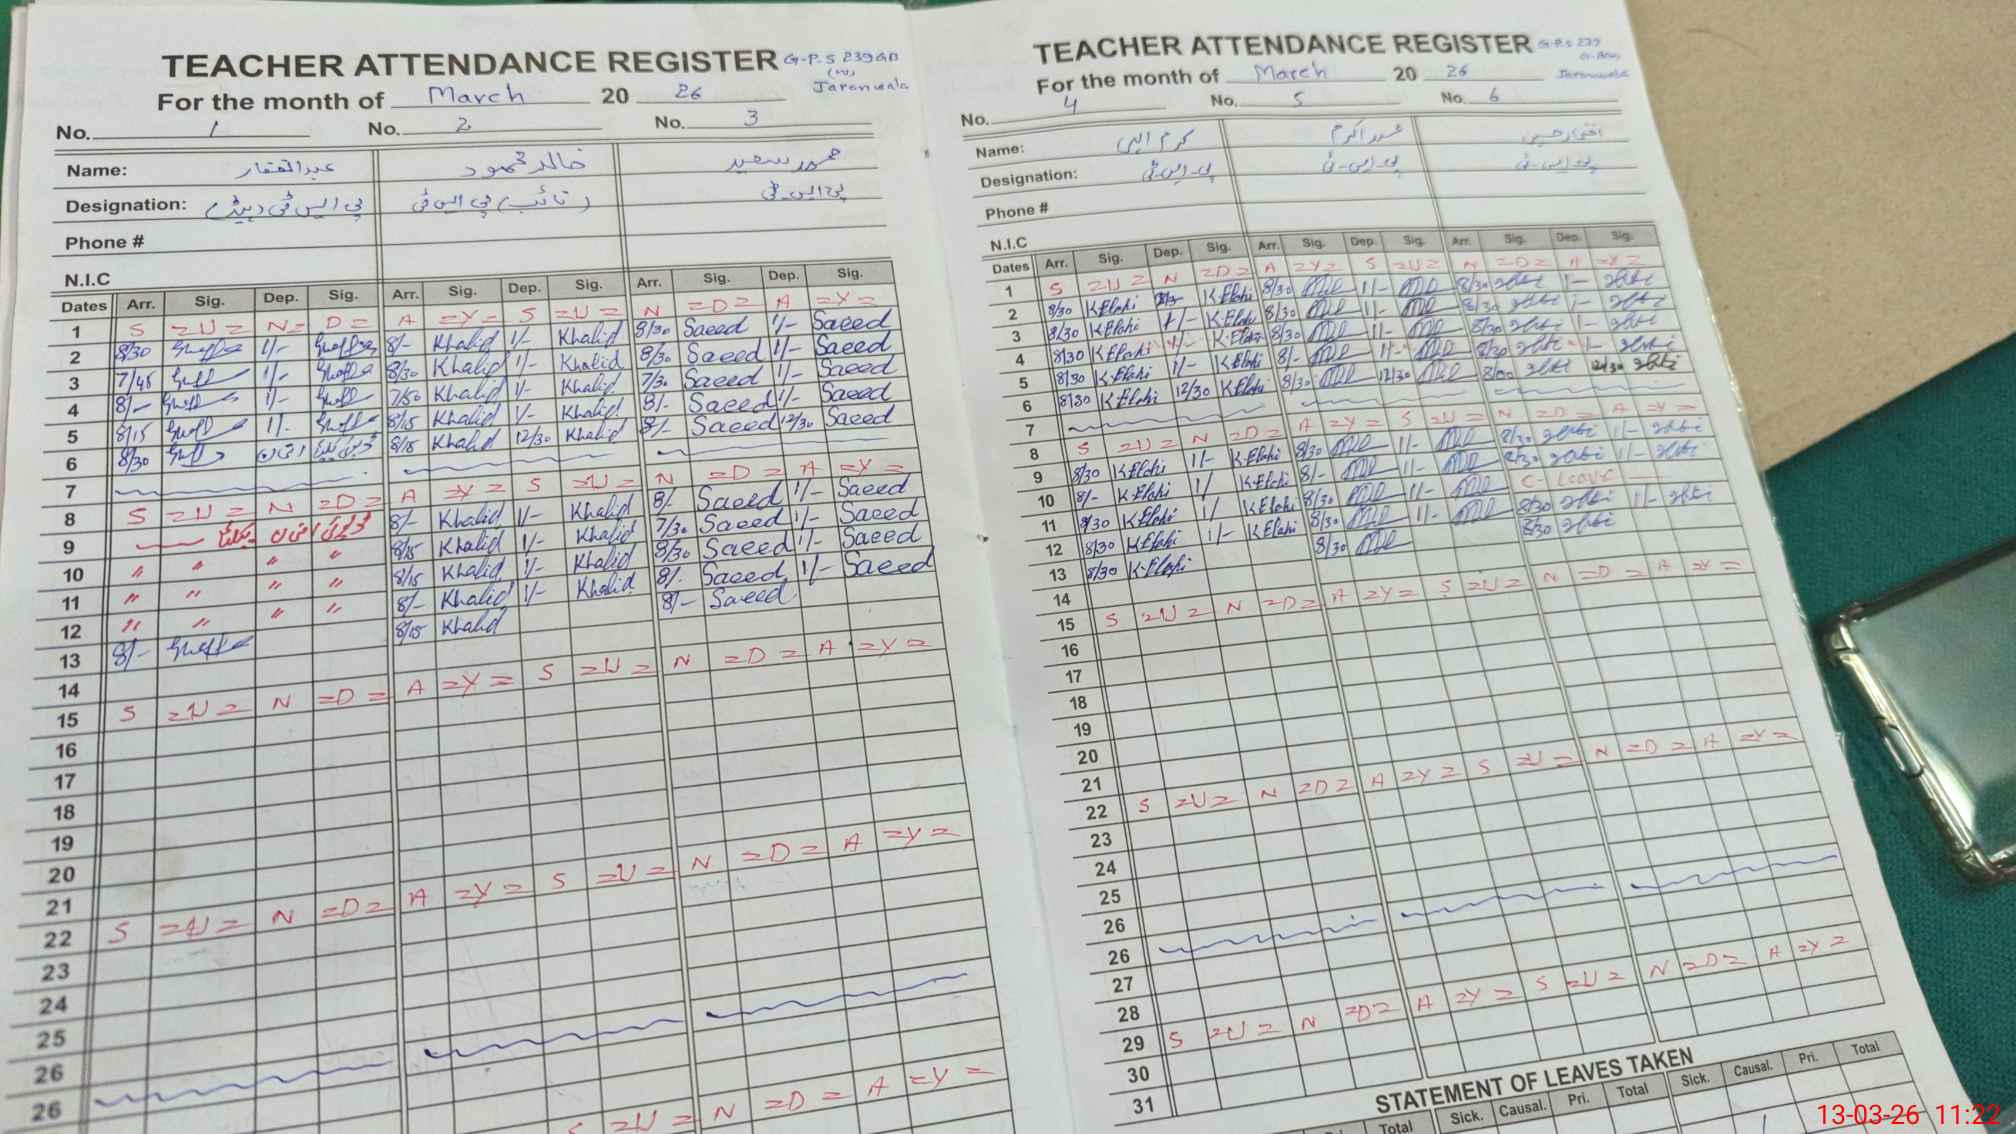 TEACHER ATTENDANCE REGISTER G.P.S 239 GB
For the month of March 20 26 Jaranwala
No. 1 No. 2 No. 3
Name: عبدالغفار خالد محمود محمد سعید
Designation: پی ایس ٹی (ہیڈ) پی ایس ٹی (نائب) پی ایس ٹی
Phone #
N.I.C
Dates Arr. Sig. Dep. Sig. Arr. Sig. Dep. Sig. Arr. Sig. Dep. Sig.
1 S =U= N= D= A =Y= S =U= N =D= A =Y=
2 8/30 1/- 8/- Khalid 1/- Khalid 8/30 Saeed 1/- Saeed
3 7/45 1/- 8/30 Khalid 1/- Khalid 8/30 Saeed 1/- Saeed
4 8/- 1/- 7/50 Khalid 1/- Khalid 7/30 Saeed 1/- Saeed
5 8/15 1/- 8/15 Khalid 1/- Khalid 8/- Saeed 1/- Saeed
6 8/30 8/15 Khalid 12/30 Khalid 8/- Saeed 12/30 Saeed
7
8 S =U= N =D= A =Y= S =U= N =D= A =Y=
9 8/- Khalid 1/- Khalid 8/- Saeed 1/- Saeed
10 " " " " 8/15 Khalid 1/- Khalid 7/30 Saeed 1/- Saeed
11 " " " " 8/15 Khalid 1/- Khalid 8/30 Saeed 1/- Saeed
12 " " " " 8/- Khalid 1/- Khalid 8/- Saeed 1/- Saeed
13 8/- 8/15 Khalid 8/- Saeed
14
15 S =U= N =D= A =Y= S =U= N =D= A =Y=
16
17
18
19
20
21
22 S =U= N =D= A =Y= S =U= N =D= A =Y=
23
24
25
26
26
S =U= N =D= A =Y=
TEACHER ATTENDANCE REGISTER G.P.S 239
For the month of March 20 26 Jaranwala
No. 4 No. 5 No. 6
Name: کرم الہی محمد اکرم افتخار حسین
Designation: پی ایس ٹی پی ایس ٹی پی ایس ٹی
Phone #
N.I.C
Dates Arr. Sig. Dep. Sig. Arr. Sig. Dep. Sig. Arr. Sig. Dep. Sig.
1 S =U= N =D= A =Y= S =U= N =D= A =Y=
2 8/30 K Elahi K Elahi 8/30 1/- 8/30 1/-
3 8/30 K Elahi 1/- K Elahi 8/30 1/- 8/30 1/-
4 8/30 K Elahi 1/- K Elahi 8/30 1/- 8/30 1/-
5 8/30 K Elahi 1/- K Elahi 8/- 1/- 8/30 1/-
6 8/30 K Elahi 12/30 K Elahi 8/30 12/30 8/30 12/30
7
8 S =U= N =D= A =Y= S =U= N =D= A =Y=
9 8/30 K Elahi 1/- K Elahi 8/30 1/- 8/30 1/-
10 8/- K Elahi 1/ K Elahi 8/- 1/- 8/30 1/-
11 8/30 K Elahi 1/ K Elahi 8/30 1/- C- Leave
12 8/30 K Elahi 1/- K Elahi 8/30 1/- 8/30 1/-
13 8/30 K Elahi 8/30 8/30
14
15 S =U= N =D= A =Y= S =U= N =D= A =Y=
16
17
18
19
20
21
22 S =U= N =D= A =Y= S =U= N =D= A =Y=
23
24
25
26
26
27
28
29 S =U= N =D= A =Y= S =U= N =D= A =Y=
30
31
STATEMENT OF LEAVES TAKEN
Total Sick. Causal. Pri. Total Sick. Causal. Pri. Total
13-03-26 11:22